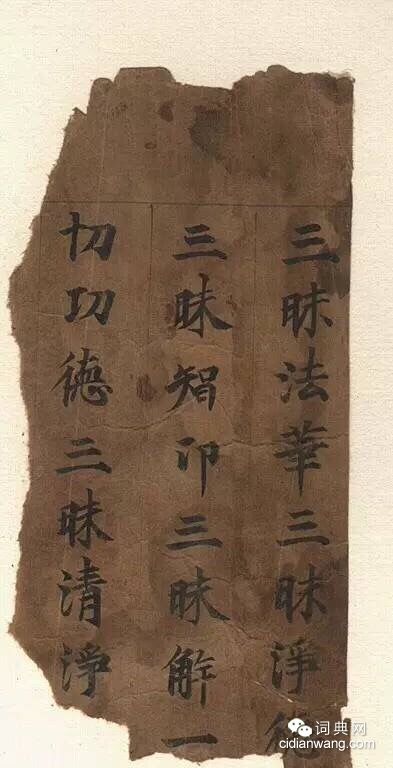 三昧法華三昧淨德
三昧智印三昧解一
切功德三昧清淨
词典网
cidianwang.com